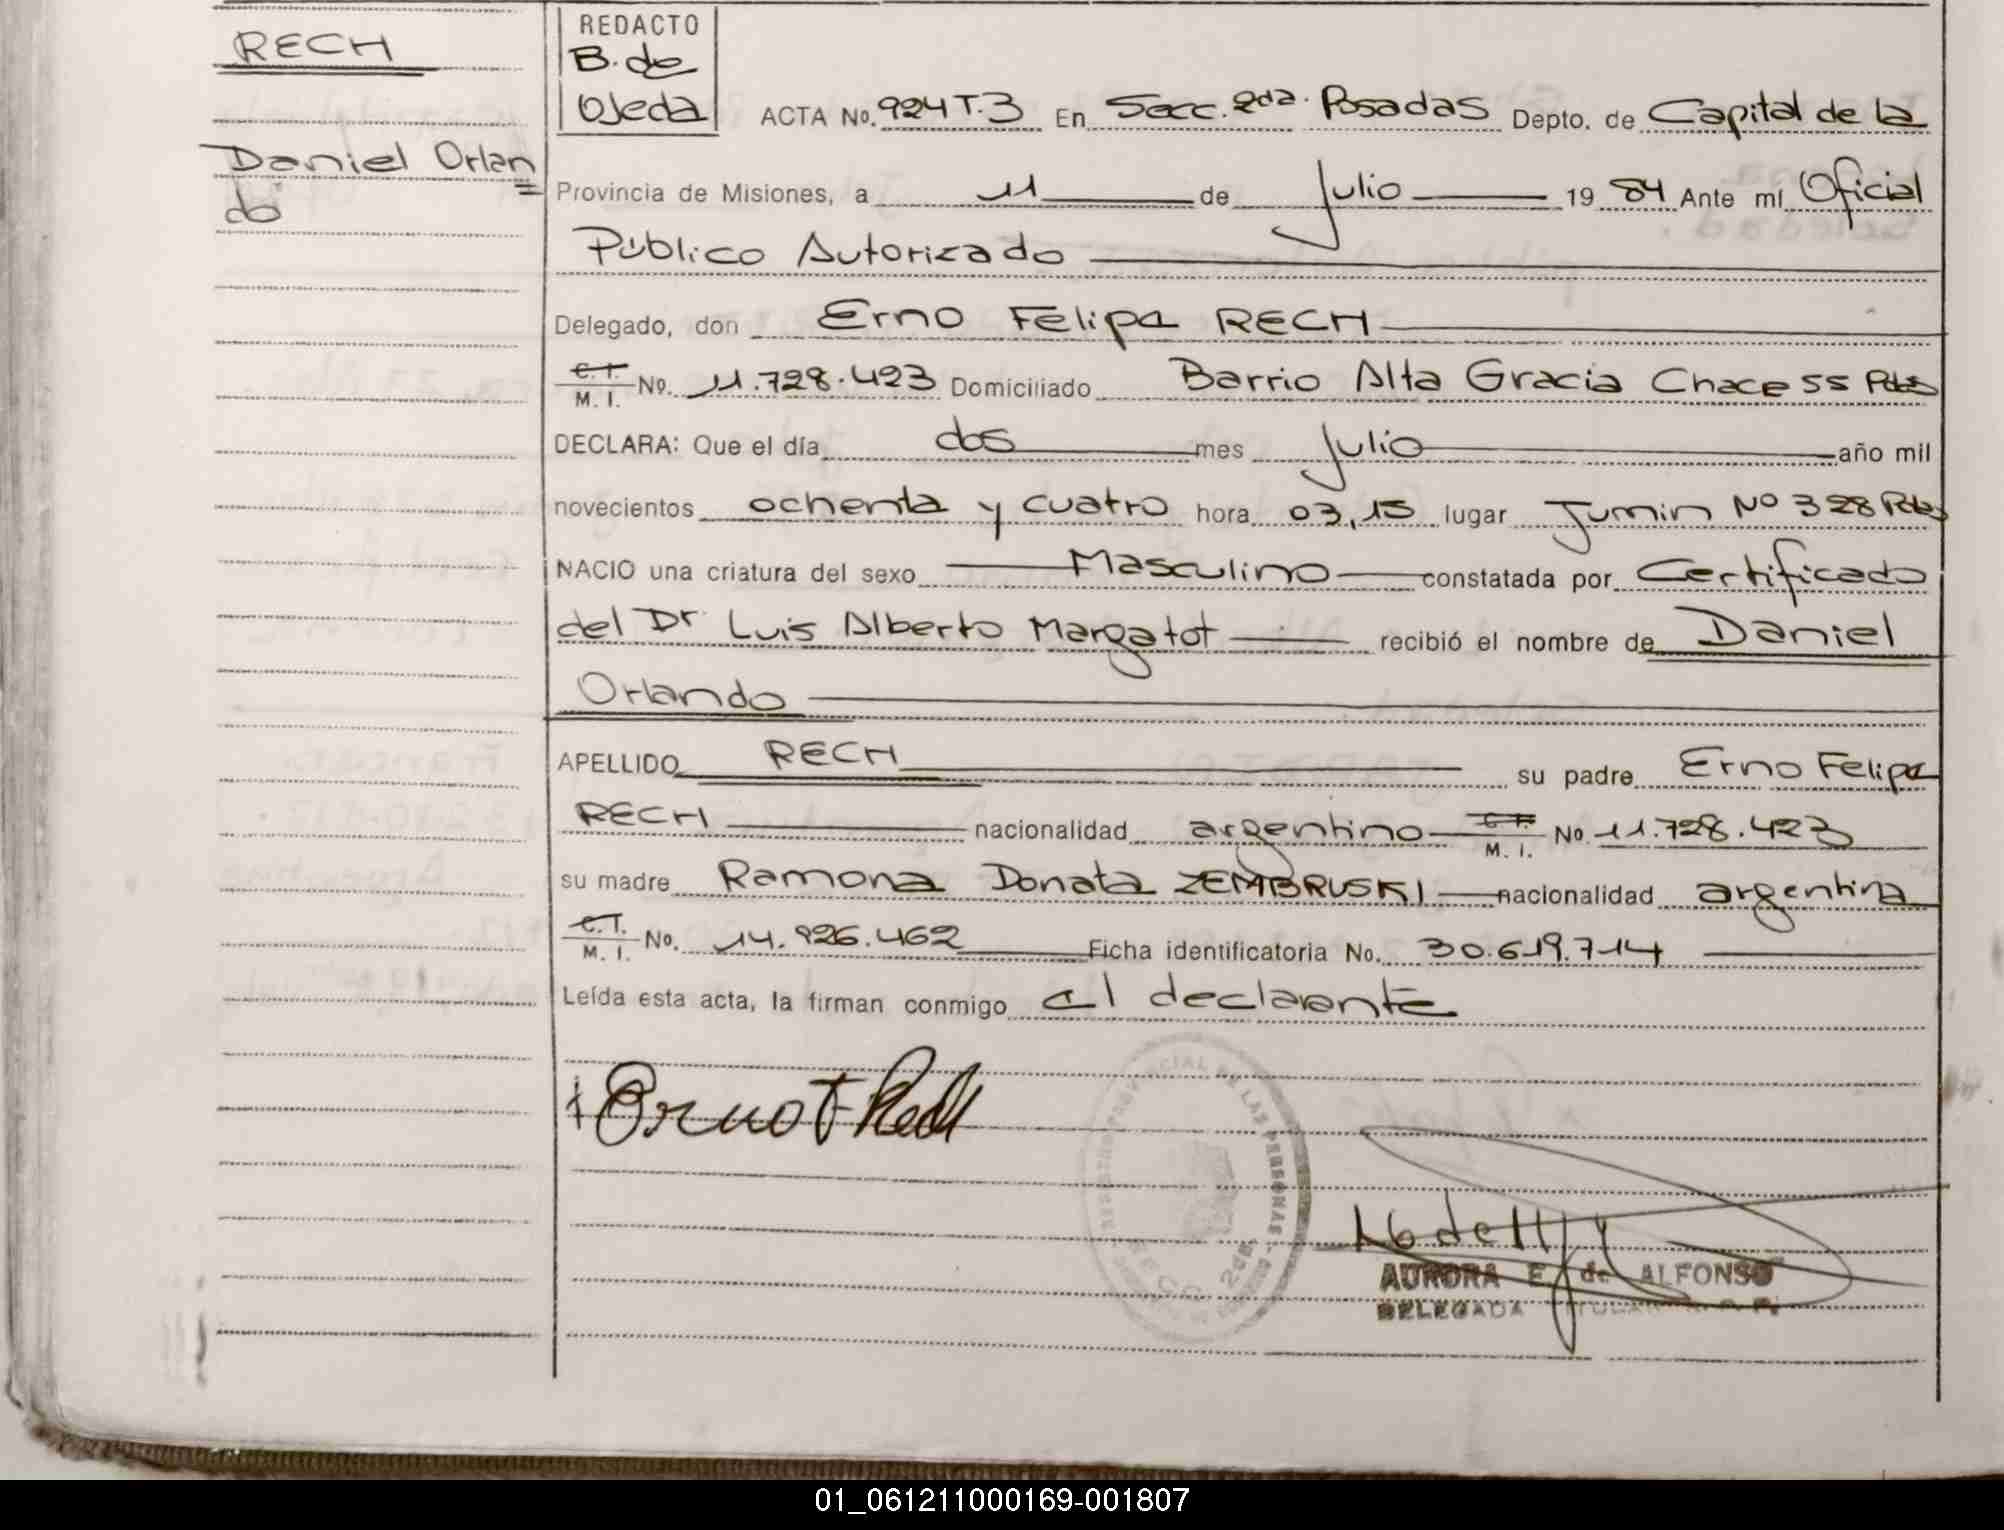 RECH
Daniel Orlan=
do
REDACTO
B. de
Ojeda
ACTA No. 924 T.3 En Secc. 2da. Posadas Depto. de Capital de la
Provincia de Misiones, a 11 de Julio 1984 Ante mí Oficial
Público Autorizado
Delegado, don Erno Felipa RECH
C.I. M.I. No. 11.728.423 Domiciliado Barrio Alta Gracia Chace 55 Pdas
DECLARA: Que el día dos mes Julio año mil
novecientos ochenta y cuatro hora 03,15 lugar Junin No 328 Pdas
NACIO una criatura del sexo Masculino constatada por Certificado
del Dr Luis Alberto Margatot recibió el nombre de Daniel
Orlando
APELLIDO RECH su padre Erno Felipa
RECH nacionalidad argentino C.I. M.I. No. 11.728.423
su madre Ramona Donata ZEMBRUSKI nacionalidad argentina
C.I. M.I. No. 14.926.462 Ficha identificatoria No. 30.619.714
Leída esta acta, la firman conmigo el declarante
Erno F Rech
REGISTRO PROVINCIAL DE LAS PERSONAS
SECC. 2da.
AURORA E. de ALFONSO
DELEGADA TITULAR
01_061211000169-001807